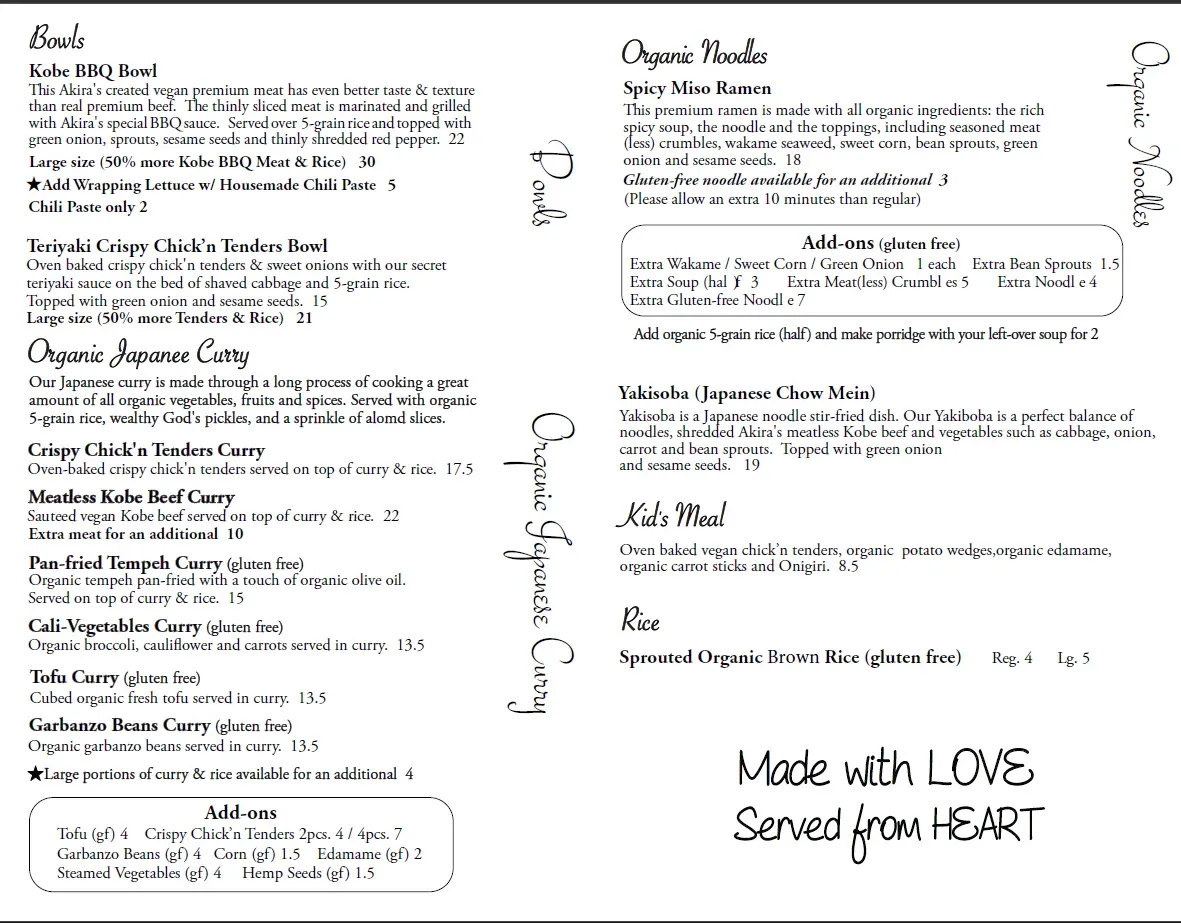 Bowls
Kobe BBQ Bowl
This Akira's created vegan premium meat has even better taste & texture
than real premium beef. The thinly sliced meat is marinated and grilled
with Akira's special BBQ sauce. Served over 5-grain rice and topped with
green onion, sprouts, sesame seeds and thinly shredded red pepper. 22
Large size (50% more Kobe BBQ Meat & Rice) 30
★Add Wrapping Lettuce w/ Housemade Chili Paste 5
Chili Paste only 2
Teriyaki Crispy Chick’n Tenders Bowl
Oven baked crispy chick'n tenders & sweet onions with our secret
teriyaki sauce on the bed of shaved cabbage and 5-grain rice.
Topped with green onion and sesame seeds. 15
Large size (50% more Tenders & Rice) 21
Bowls
Organic Japanee Curry
Our Japanese curry is made through a long process of cooking a great
amount of all organic vegetables, fruits and spices. Served with organic
5-grain rice, wealthy God's pickles, and a sprinkle of alomd slices.
Crispy Chick'n Tenders Curry
Oven-baked crispy chick'n tenders served on top of curry & rice. 17.5
Meatless Kobe Beef Curry
Sauteed vegan Kobe beef served on top of curry & rice. 22
Extra meat for an additional 10
Pan-fried Tempeh Curry (gluten free)
Organic tempeh pan-fried with a touch of organic olive oil.
Served on top of curry & rice. 15
Cali-Vegetables Curry (gluten free)
Organic broccoli, cauliflower and carrots served in curry. 13.5
Tofu Curry (gluten free)
Cubed organic fresh tofu served in curry. 13.5
Garbanzo Beans Curry (gluten free)
Organic garbanzo beans served in curry. 13.5
★Large portions of curry & rice available for an additional 4
Add-ons
Tofu (gf) 4 Crispy Chick’n Tenders 2pcs. 4 / 4pcs. 7
Garbanzo Beans (gf) 4 Corn (gf) 1.5 Edamame (gf) 2
Steamed Vegetables (gf) 4 Hemp Seeds (gf) 1.5
Organic Japanese Curry
Organic Noodles
Spicy Miso Ramen
This premium ramen is made with all organic ingredients: the rich
spicy soup, the noodle and the toppings, including seasoned meat
(less) crumbles, wakame seaweed, sweet corn, bean sprouts, green
onion and sesame seeds. 18
Gluten-free noodle available for an additional 3
(Please allow an extra 10 minutes than regular)
Organic Noodles
Add-ons (gluten free)
Extra Wakame / Sweet Corn / Green Onion 1 each Extra Bean Sprouts 1.5
Extra Soup (hal f) 3 Extra Meat(less) Crumbl es 5 Extra Noodl e 4
Extra Gluten-free Noodl e 7
Add organic 5-grain rice (half) and make porridge with your left-over soup for 2
Yakisoba (Japanese Chow Mein)
Yakisoba is a Japanese noodle stir-fried dish. Our Yakiboba is a perfect balance of
noodles, shredded Akira's meatless Kobe beef and vegetables such as cabbage, onion,
carrot and bean sprouts. Topped with green onion
and sesame seeds. 19
Kid's Meal
Oven baked vegan chick’n tenders, organic potato wedges,organic edamame,
organic carrot sticks and Onigiri. 8.5
Rice
Sprouted Organic Brown Rice (gluten free) Reg. 4 Lg. 5
Made with LOVE
Served from HEART